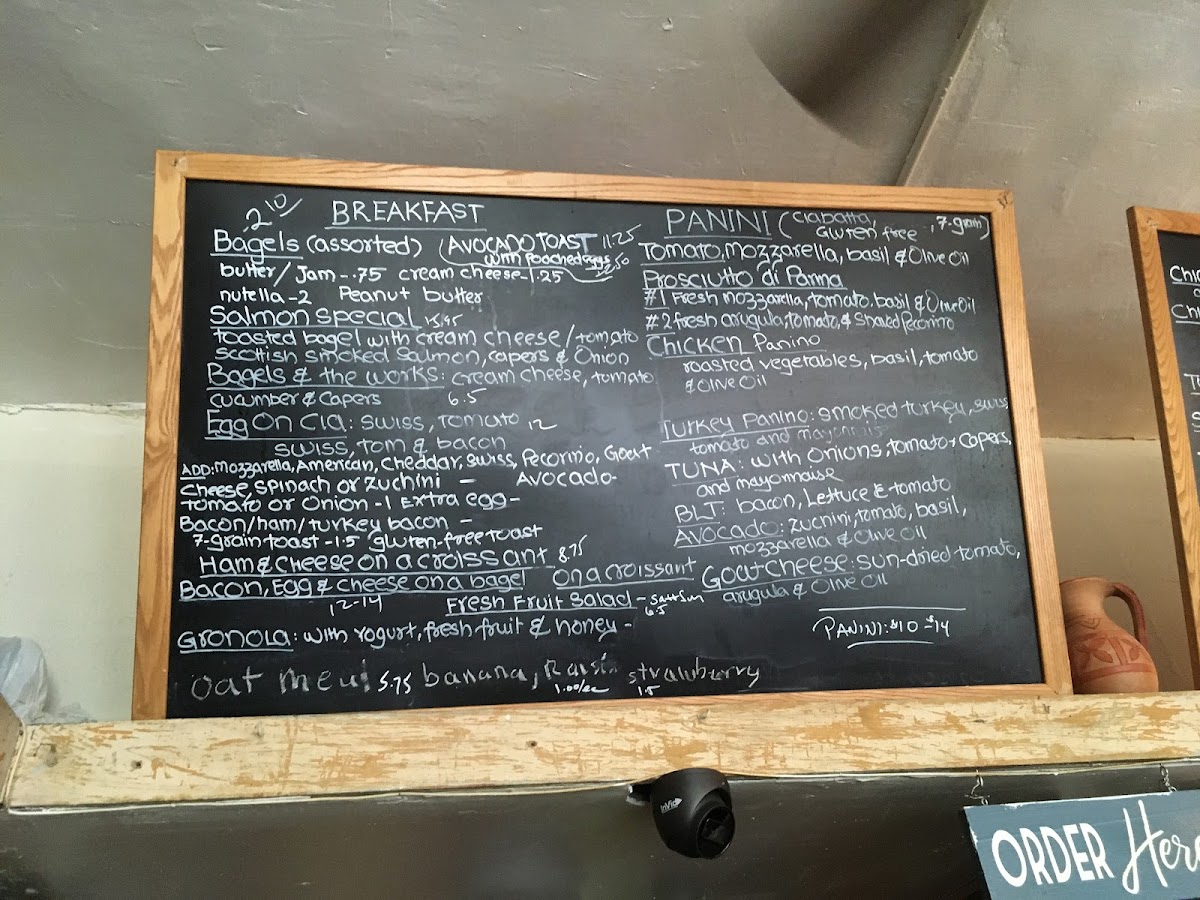 2.10/
BREAKFAST
Bagels (assorted)
(AVOCADO TOAST 11.25
with poached eggs
2.50
butter/Jam-.75 cream cheese-1.25
nutella-2 Peanut butter
Salmon special 15.95
toasted bagel with cream cheese/tomato
scottish smoked salmon, capers & Onion
Bagels & the works: cream cheese, tomato
cucumber & Capers 6.5
Egg On Cia: swiss, tomato 12
swiss, tom & bacon
ADD: Mozzarella, American, Cheddar, swiss, Pecorino, Goat
Cheese, spinach or zuchini - Avocado-
tomato or Onion -1 Extra egg-
Bacon/ham/turkey bacon -
7-grain toast -1.5 gluten-free toast
Ham & cheese on a croissant 8.75
Bacon, Egg & cheese on a bagel On a croissant
12-14
Fresh Fruit Salad - Sat+Sun
6.5
Gronola: with Yogurt, fresh fruit & honey -
Oat meal 5.75 banana, Raisin strawberry
1.00/ea 1.5
PANINI (Ciabatta, 7-grain)
Gluten free
Tomato, mozzarella, basil & Olive Oil
Prosciutto di Parma
#1 Fresh mozzarella, tomato, basil & Olive Oil
#2 fresh arugula, tomato, & Shaved Pecorino
Chicken Panino
roasted vegetables, basil, tomato
& Olive Oil
Turkey Panino: smoked turkey, swiss
tomato and mayonnaise
TUNA: with Onions, tomato + Capers,
and mayonnaise
BLT: bacon, Lettuce & tomato
AVOCADO: zuchini, tomato, basil,
mozzarella & Olive Oil
Goat Cheese: sun-dried tomato,
arugula & Olive Oil
PANINI: $10-$14
inVid
ORDER Here